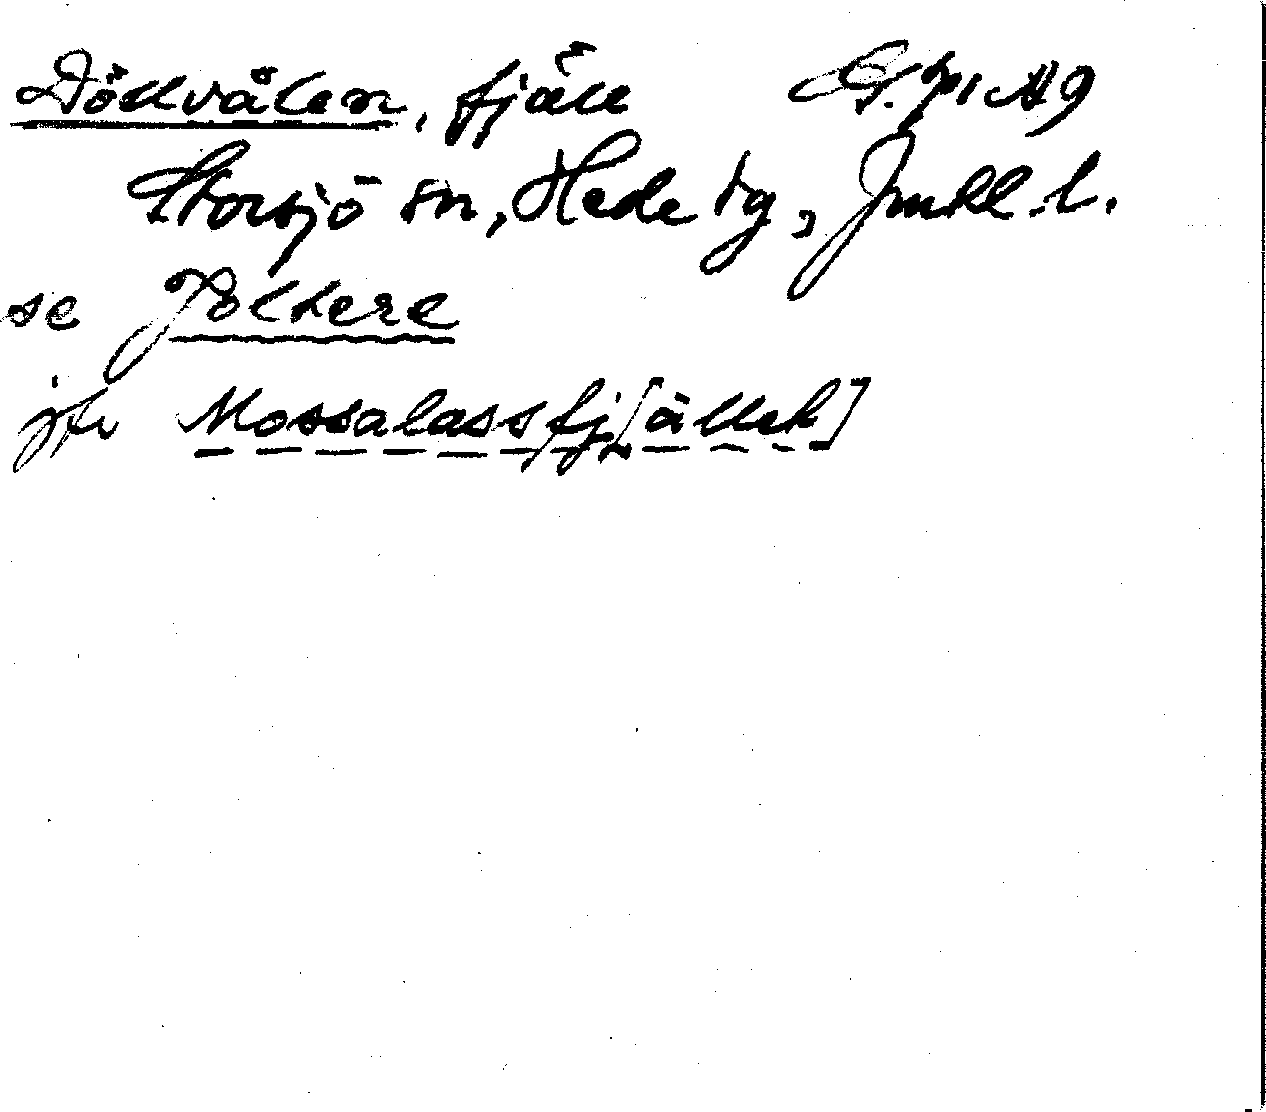 Döllvålen, fjäll
Storsjö sn, Hede tg, Jmtl. l.
se Joltere
jfr Mossalassfj[ället]